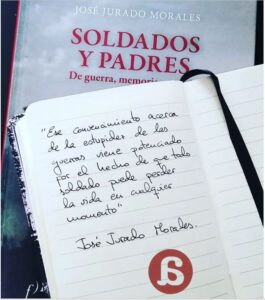 JOSÉ JURADO MORALES
SOLDADOS
Y PADRES
De guerra, memoria
"Ese convencimiento acerca
de la estupidez de las
guerras viene potenciado
por el hecho de que todo
soldado puede perder
la vida en cualquier
momento"
José Jurado Morales.